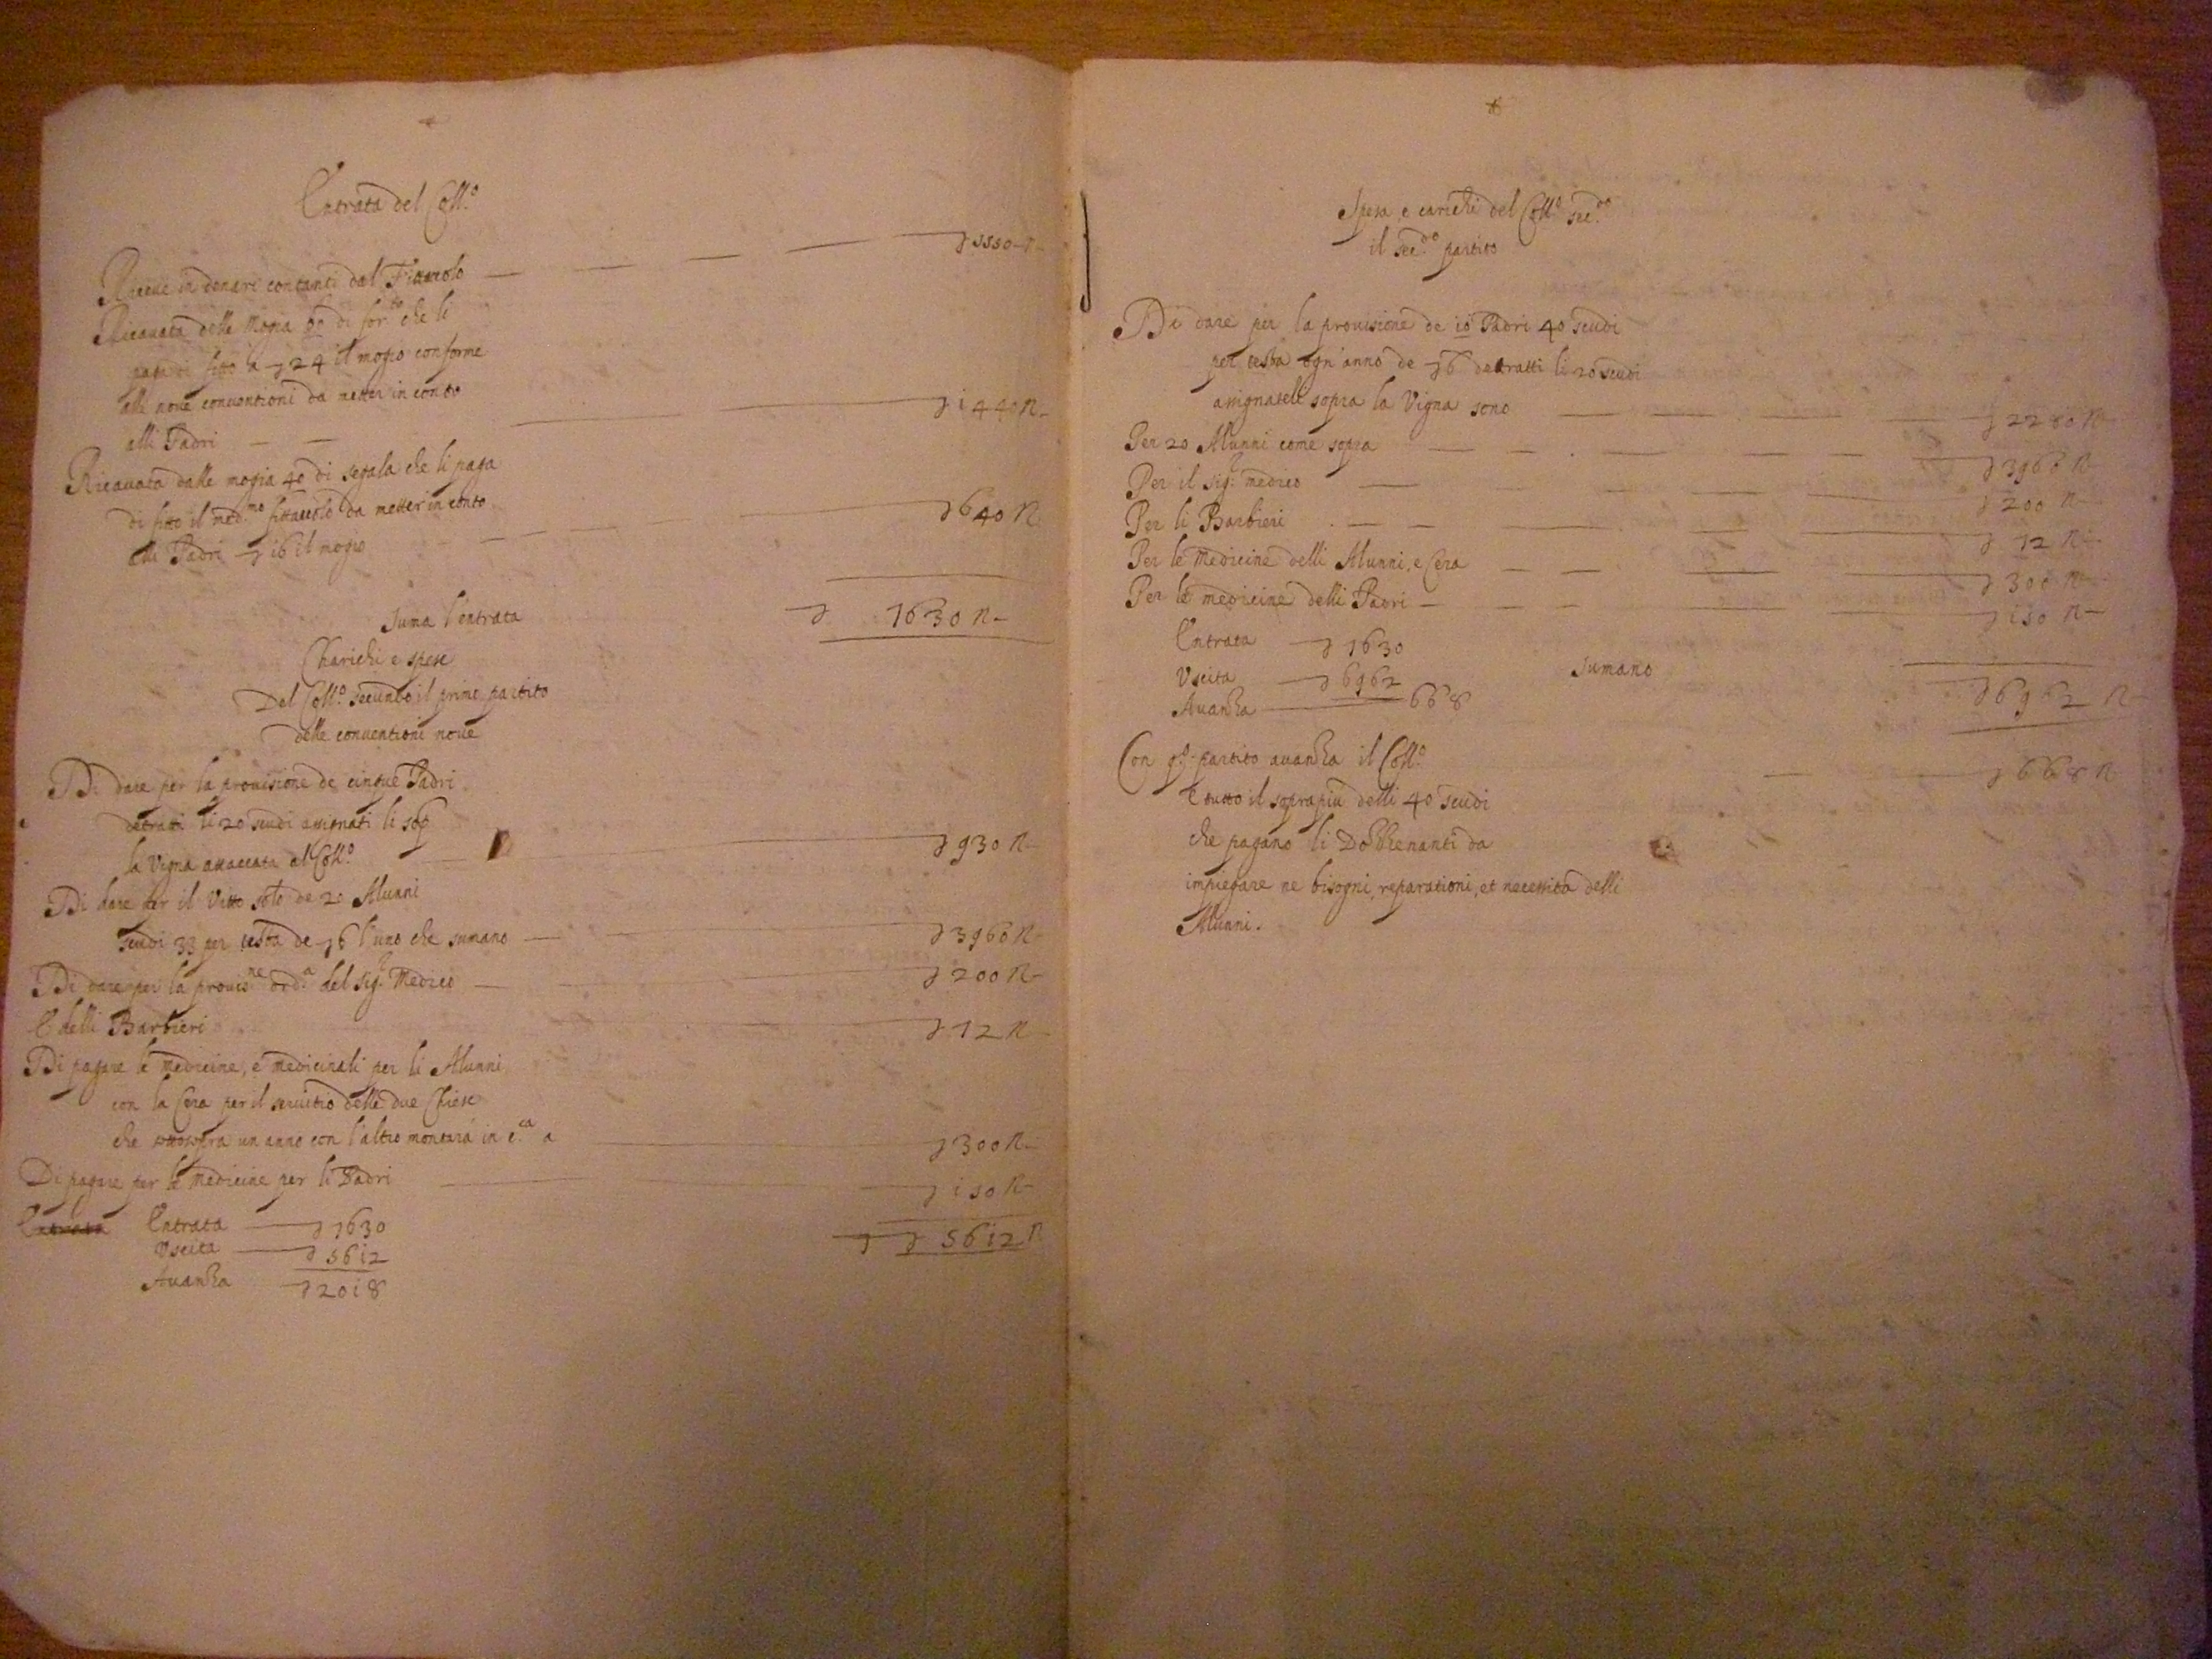 Entrata del Coll.º
Riceve in denari contanti dal Fittavolo — — — — 5550 —
Ricavata delle Mogia 60 di for.to che li
paga di fitto a 24 il mogio conforme
alli nove conventioni da metter in conto
alli Padri — — i440 n —
Ricavata dalle mogia 40 di segala che li paga
di fitto il med.mo fittavolo da metter in conto
alli Padri 16 il mogio — 640 n
Suma l'entrata 7630 n —
Charichi e spese
Del Coll.º secundo il primo partito
delle conventioni nove
Di dare per la provisione de cinque Padri
detratti li 20 scudi assignati li sop.
la Vigna attaccata al Coll.º — 930 n —
Di dare per il vitto solo de 20 Alunni
scudi 33 per testa de 6 l'uno che sumano — 3960 n —
Di dare per la provis.ne ord.a del Sig.r Medico — 200 n —
E delli Barbieri 12 n —
Di pagare le medicine, e medicinali per li Alunni
con la Cera per il servitio delle due Chiese
che sottosopra un anno con l'altro montarà in c.ca a — 300 n —
Di pagare per le medicine per li Padri — iso n —
Entrata Entrata — 7630
Uscita — 56i2 5612 n
Avanza — 20i8
Spesa e carichi del Coll.º sec.do
il sec.do partito
Di dare per la provisione de io Padri 40 scudi
per testa ogn'anno de 6 detratti li 20 scudi
assignateli sopra la Vigna sono — — 2280 n —
Per 20 Alunni come sopra — — 3960 n —
Per il Sig.r medico — — 200 n —
Per li Barbieri — — 12 n —
Per le medicine delli Alunni, e Cera — — 300 n —
Per le medicine delli Padri — — iso n —
Entrata — 7630
Uscita — 6962 Sumano 6962 n
Avanza — 668
Con q.º partito avanza il Coll.º — 668 n
E tutto il soprapiù delli 40 scudi
che pagano li Dozzenanti da
impiegare ne bisogni, reparationi, et necessita delli
Alunni.